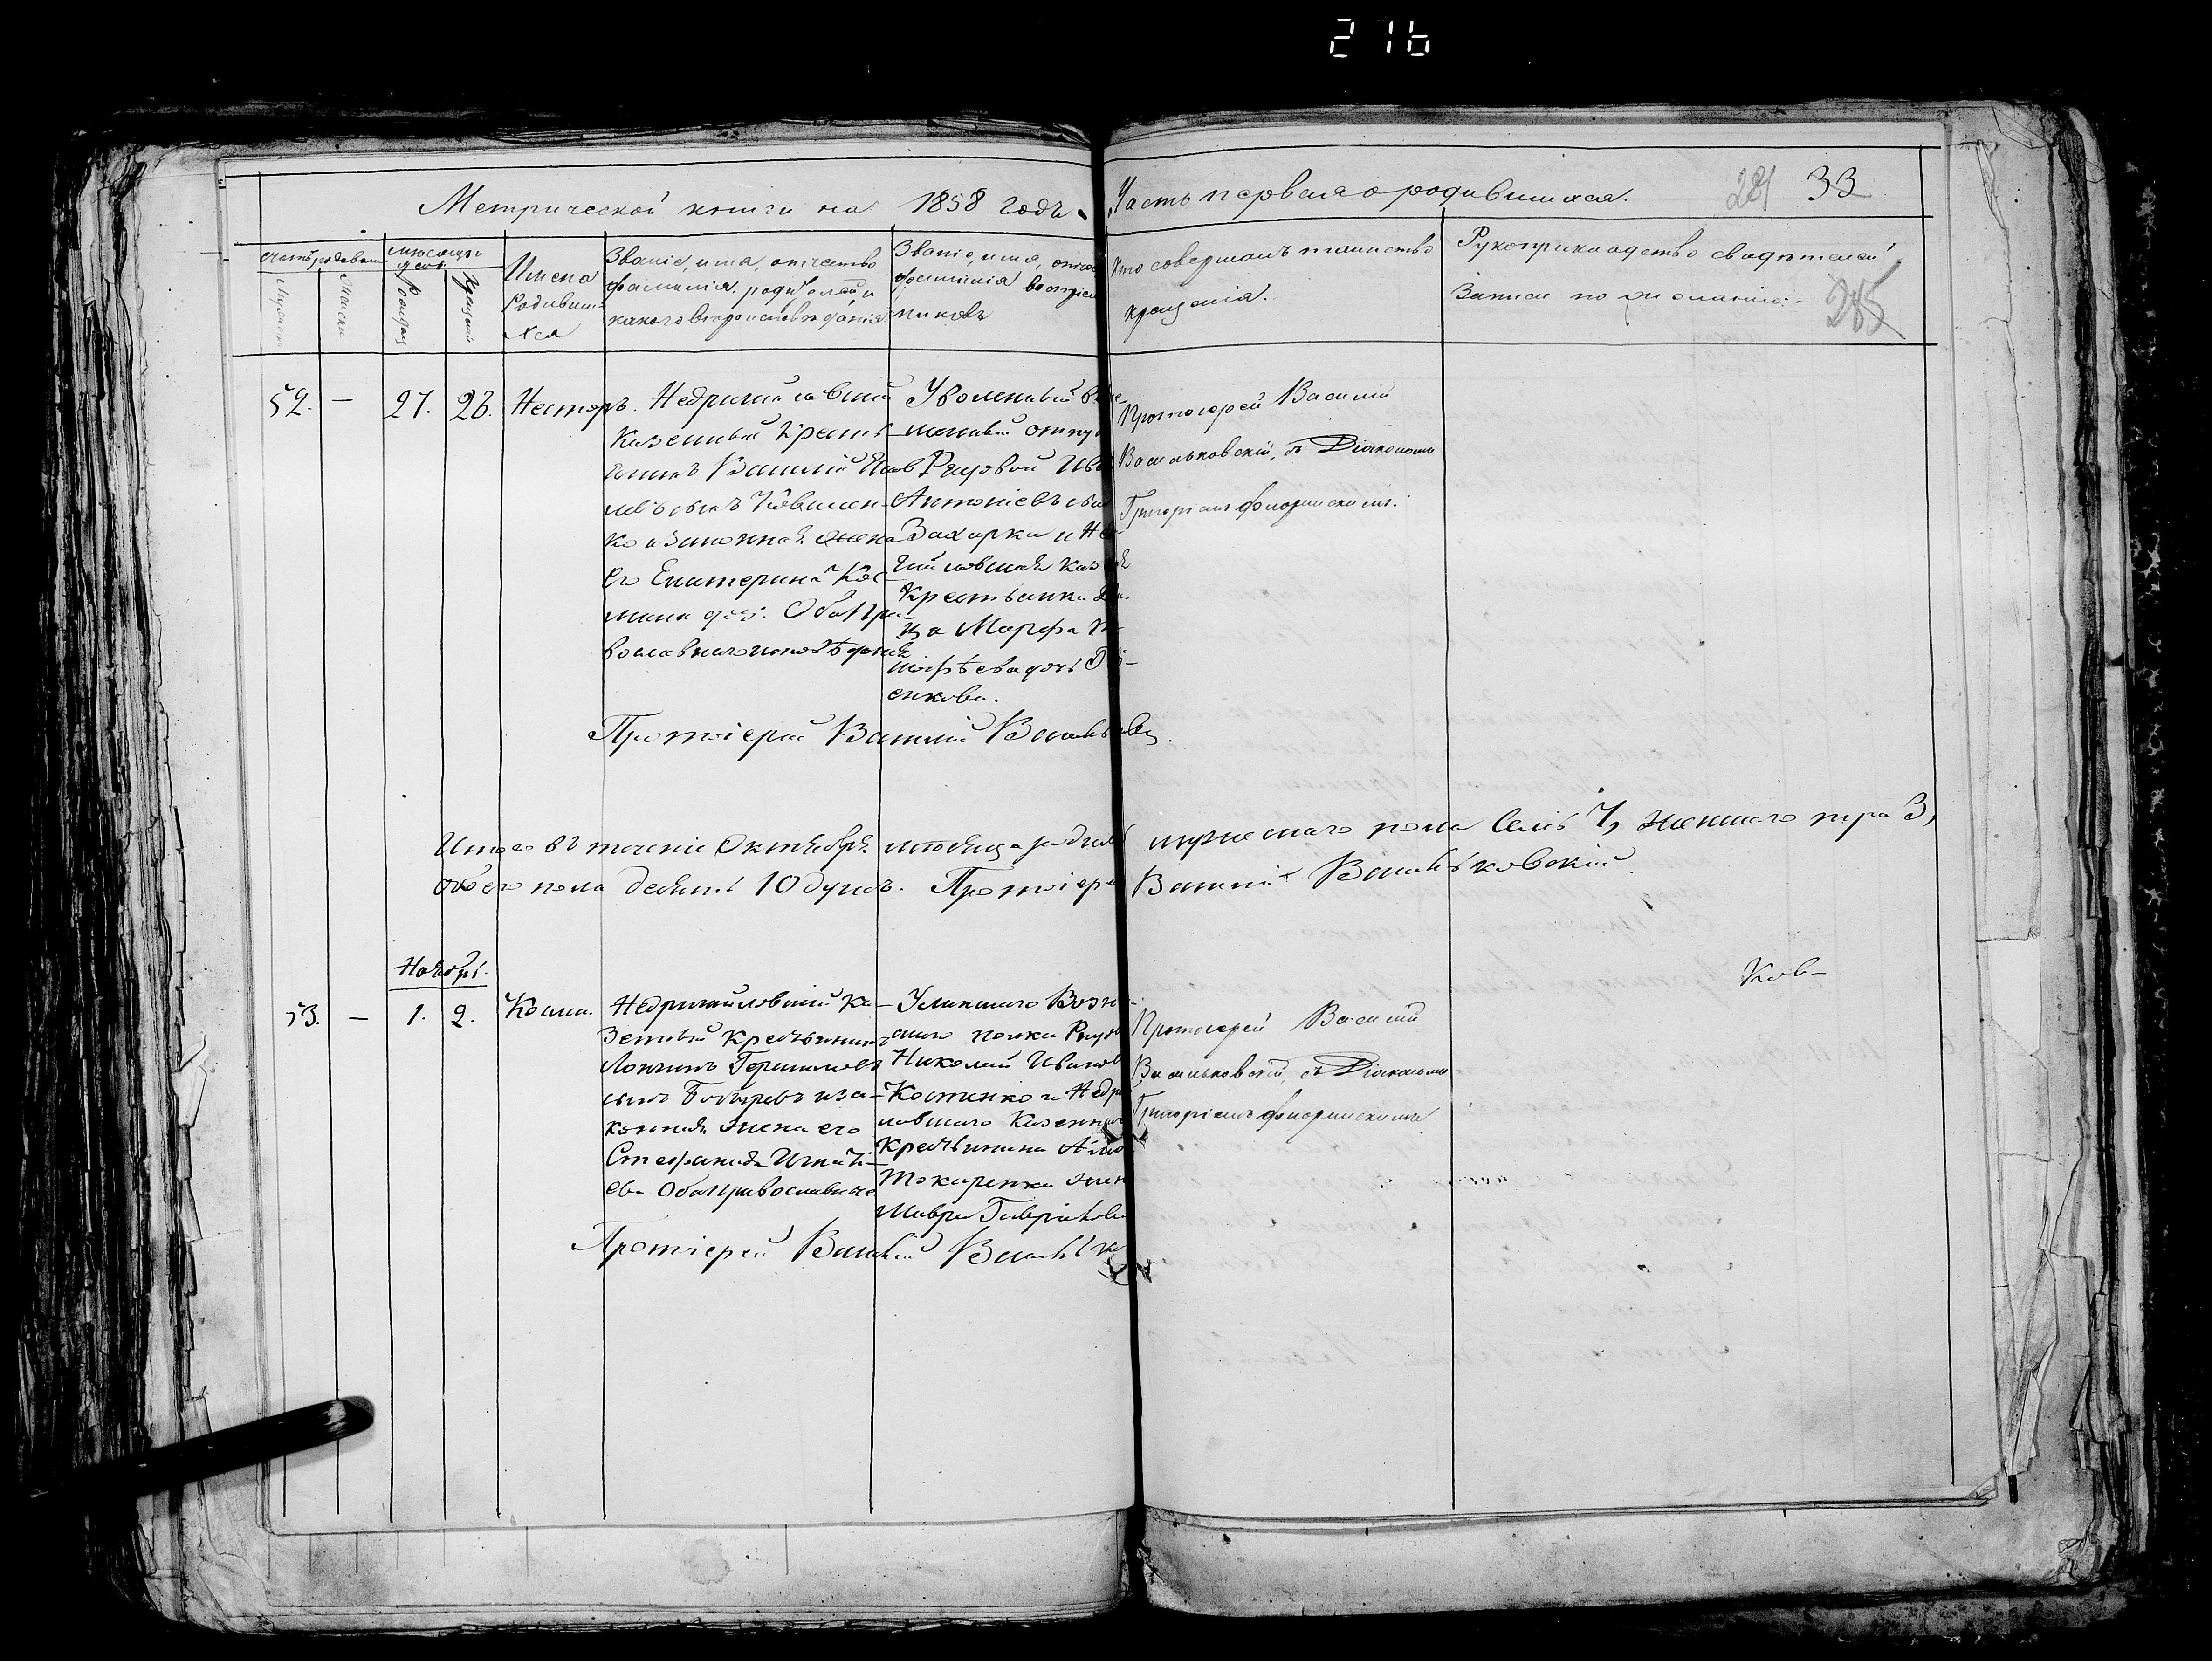 216
Метрической книги на 1858 годъ. Часть первая о родившихся. 281 33
285
Счетъ родившихся
Мужеска
Женска
Мѣсяцъ и день
Рожденія
Крещенія
Имена
Родивших-
хся
Званіе, имя, отчество
фамилія родителей и
какого вѣроисповѣданія
Званіе, имя, отчес
фамилія воспріем
никовъ
Кто совершалъ таинство
крещенія.
Рукоприкладство свидѣтелей
записи по желанію.
52. — 27. 28. Несторъ.
Недригайловскій
Казенный Кресть-
янинъ Василій Яков
левъ сынъ
ко и Законная жена
его Екатерина Кос-
мина дочь. Оба Пра-
вославнаго исповѣданія
Уволенный въ
отпускъ
Рядовой Ива
Антоніевъ сынъ
Захарка и Не-
гайловская каз
Крестьянка
ца Марфа
дочь
енкова.
Протоіерей Василій
Васильковскій, съ Діакономъ
Григоріемъ
Протоіерей Василій Васильковск
Итого въ теченіе Октября мѣсяца родилось мужескаго пола Семь 7, женскаго три 3,
обоего пола десять 10 душъ. Протоіерей Василій Васильковскій.
Ноябрь.
53. — 1. 2. Косма.
Недригайловскій Ка-
зенный Крестьянинъ
Логгинъ Герасимовъ
сынъ и за-
конная жена его
Стефанида Игнаті-
ева Оба Православные
Уланскаго Возне-
скаго полка Рядов
Николай Иванов
Костенко и Недри
ловскаго Казеннаго
Крестьянина
Токаренка жен
Мавра Гавріилова
Протоіерей Василій
Васильковскій, съ Діакономъ
Григоріемъ
Протоіерей Василій Василько
Ков-